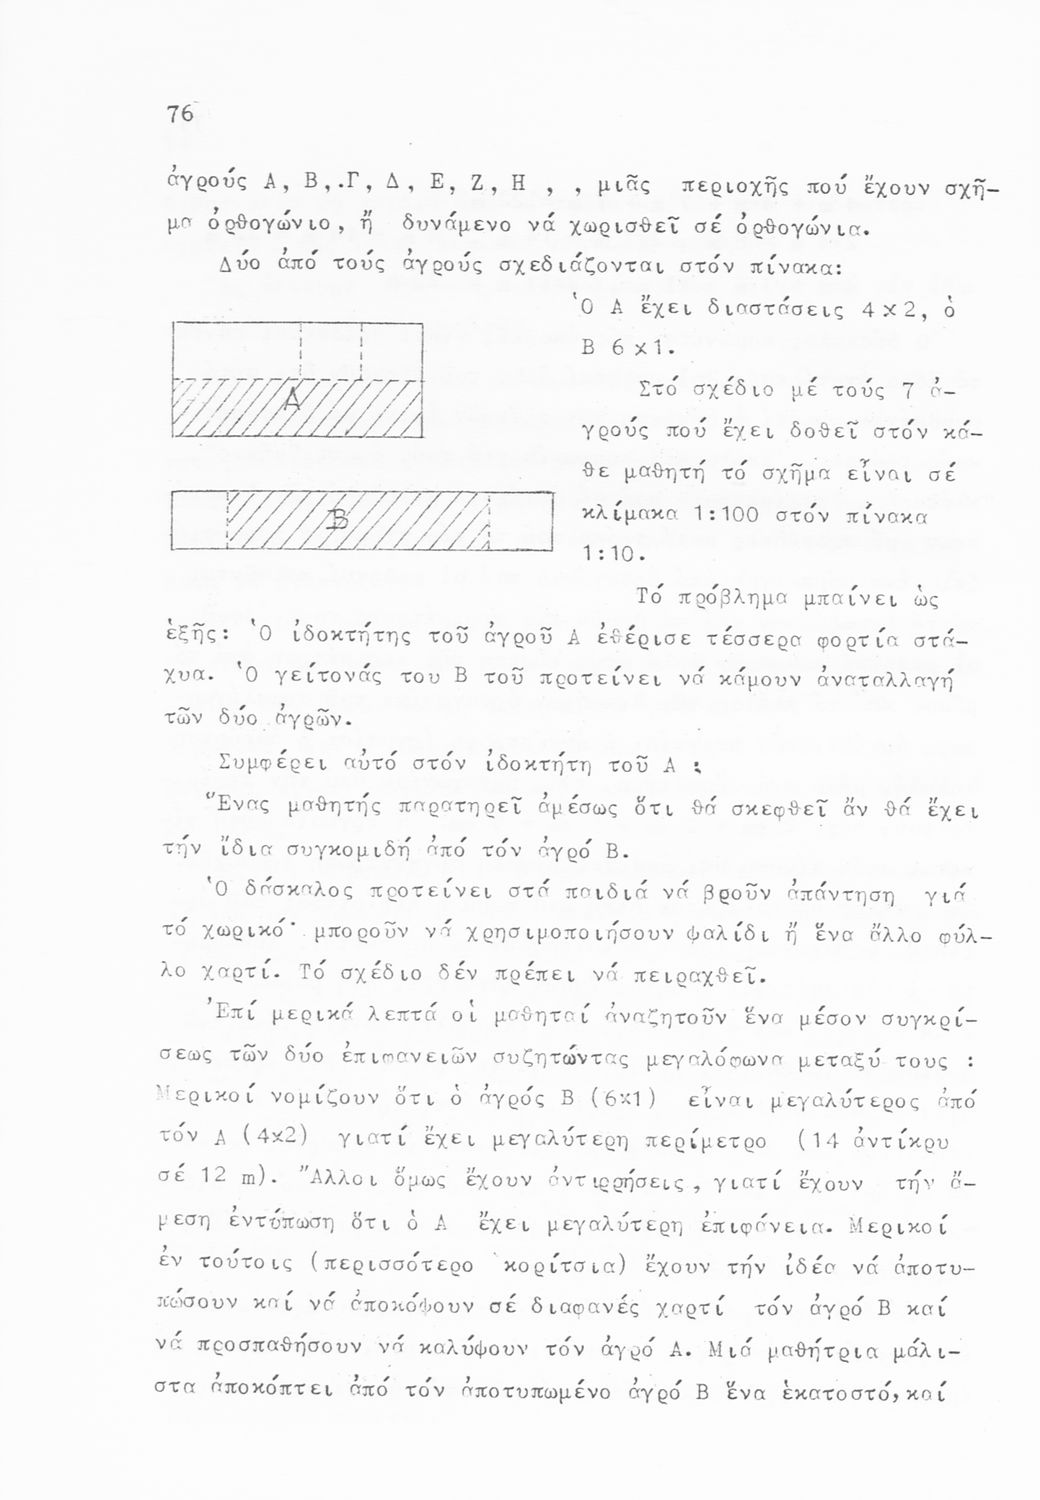 76
ἀγρούς Α, Β,.Γ, Δ, Ε, Ζ, Η , , μιᾶς περιοχῆς πού ἔχουν σχῆ-
μα ὀρθογώνιο, ἤ δυνάμενο νά χωρισθεῖ σέ ὀρθογώνια.
Δύο ἀπό τούς ἀγρούς σχεδιάζονται στόν πίνακα:
Ὁ Α ἔχει διαστάσεις 4x2, ὁ
Β 6x1.
Στό σχέδιο μέ τούς 7 ἀ-
γρούς πού ἔχει δοθεῖ στόν κά-
θε μαθητή τό σχῆμα εἶναι σέ
κλίμακα 1:100 στόν πίνακα
1:10.
Α
Β
Τό πρόβλημα μπαίνει ὡς
ἑξῆς: Ὁ ἰδοκτήτης τοῦ ἀγροῦ Α ἐθέρισε τέσσερα φορτία στά-
χυα. Ὁ γείτονάς του Β τοῦ προτείνει νά κάμουν ἀναταλλαγή
τῶν δύο ἀγρῶν.
Συμφέρει αὐτό στόν ἰδοκτήτη τοῦ Α ;
Ἕνας μαθητής παρατηρεῖ ἀμέσως ὅτι θά σκεφθεῖ ἄν θά ἔχει
τήν ἴδια συγκομιδή ἀπό τόν ἀγρό Β.
Ὁ δάσκαλος προτείνει στά παιδιά νά βροῦν ἀπάντηση γιά
τό χωρικό· μποροῦν νά χρησιμοποιήσουν ψαλίδι ἤ ἕνα ἄλλο φύλ-
λο χαρτί. Τό σχέδιο δέν πρέπει νά πειραχθεῖ.
Ἐπί μερικά λεπτά οἱ μαθηταί ἀναζητοῦν ἕνα μέσον συγκρί-
σεως τῶν δύο ἐπιφανειῶν συζητώντας μεγαλόφωνα μεταξύ τους :
Μερικοί νομίζουν ὅτι ὁ ἀγρός Β (6x1) εἶναι μεγαλύτερος ἀπό
τόν Α (4x2) γιατί ἔχει μεγαλύτερη περίμετρο (14 ἀντίκρυ
σέ 12 m). Ἄλλοι ὅμως ἔχουν ἀντιρρήσεις, γιατί ἔχουν τήν ἄ-
μεση ἐντύπωση ὅτι ὁ Α ἔχει μεγαλύτερη ἐπιφάνεια. Μερικοί
ἐν τούτοις (περισσότερο κορίτσια) ἔχουν τήν ἰδέα νά ἀποτυ-
πώσουν καί νά ἀποκόψουν σέ διαφανές χαρτί τόν ἀγρό Β καί
νά προσπαθήσουν νά καλύψουν τόν ἀγρό Α. Μιά μαθήτρια μάλι-
στα ἀποκόπτει ἀπό τόν ἀποτυπωμένο ἀγρό Β ἕνα ἑκατοστό, καί